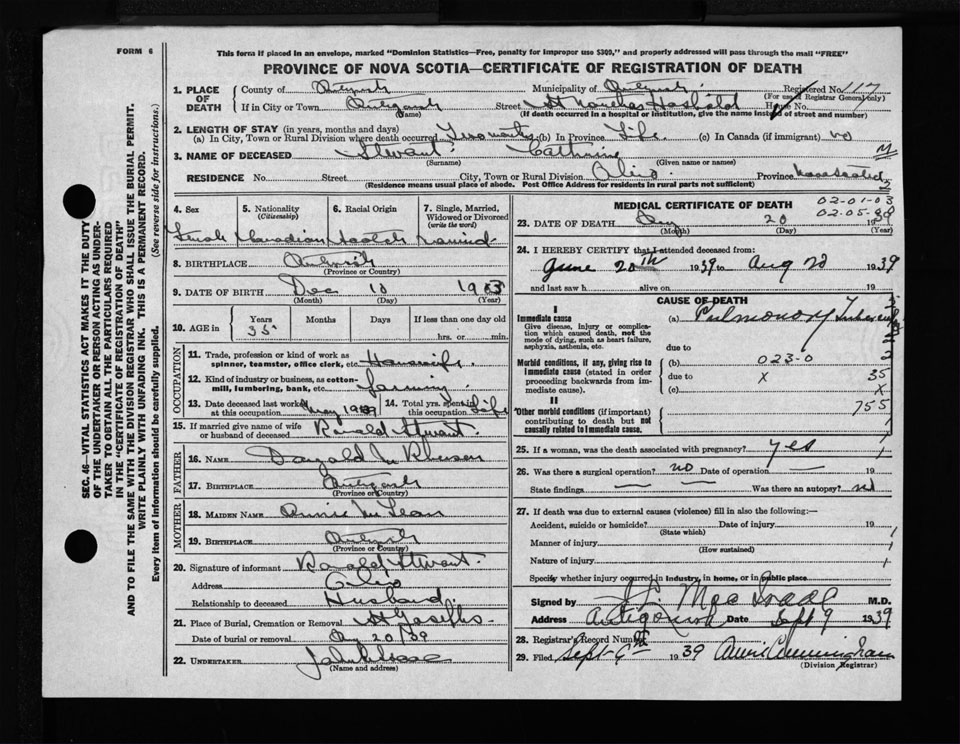 FORM 6
This form if placed in an envelope, marked "Dominion Statistics—Free, penalty for improper use $300," and properly addressed will pass through the mail "FREE"
PROVINCE OF NOVA SCOTIA—CERTIFICATE OF REGISTRATION OF DEATH
SEC. 46—VITAL STATISTICS ACT MAKES IT THE DUTY
OF THE UNDERTAKER OR PERSON ACTING AS UNDER-
TAKER TO OBTAIN ALL THE PARTICULARS REQUIRED
IN THE "CERTIFICATE OF REGISTRATION OF DEATH"
AND TO FILE THE SAME WITH THE DIVISION REGISTRAR WHO SHALL ISSUE THE BURIAL PERMIT.
WRITE PLAINLY WITH UNFADING INK. THIS IS A PERMANENT RECORD.
Every item of Information should be carefully supplied. (See reverse side for instructions.)
1. PLACE OF DEATH
County of Municipality of Registered No. 117
(For use of Registrar General only)
If in City or Town Street House No.
(Name) (If death occurred in a hospital or institution, give the name instead of street and number)
2. LENGTH OF STAY (in years, months and days)
(a) In City, Town or Rural Division where death occurred (b) In Province Life (c) In Canada (if immigrant) no
3. NAME OF DECEASED Stewart Catherine
(Surname) (Given name or names)
RESIDENCE No. Street City, Town or Rural Division Province Nova Scotia
(Residence means usual place of abode. Post Office Address for residents in rural parts not sufficient)
4. Sex 5. Nationality (Citizenship) 6. Racial Origin 7. Single, Married, Widowed or Divorced (write the word)
Female Canadian Scotch Married
8. BIRTHPLACE
(Province or Country)
9. DATE OF BIRTH Dec 10
(Month) (Day) (Year)
10. AGE in Years Months Days If less than one day old
35 hrs. or min.
OCCUPATION
11. Trade, profession or kind of work as spinner, teamster, office clerk, etc. Housewife
12. Kind of industry or business, as cotton-mill, lumbering, bank, etc. farming
13. Date deceased last worked at this occupation May 1939 14. Total yrs. spent in this occupation Life
15. If married give name of wife or husband of deceased Ronald Stewart
FATHER
16. NAME
17. BIRTHPLACE
(Province or Country)
MOTHER
18. MAIDEN NAME Annie McLean
19. BIRTHPLACE
(Province or Country)
20. Signature of informant Ronald Stewart
Address
Relationship to deceased Husband
21. Place of Burial, Cremation or Removal St Josephs
Date of burial or removal 20/39
22. UNDERTAKER
(Name and address)
MEDICAL CERTIFICATE OF DEATH
02-01-03
23. DATE OF DEATH Aug 20
(Month) (Day) (Year)
24. I HEREBY CERTIFY that I attended deceased from:
June 20th 1939 to Aug 20 1939
and last saw h alive on 19
CAUSE OF DEATH
I
Immediate cause
Give disease, injury or complication which caused death, not the mode of dying, such as heart failure, asphyxia, asthenia, etc.
(a) Pulmonary
due to
Morbid conditions, if any, giving rise to Immediate cause (stated in order proceeding backwards from immediate cause).
(b) 023-0
due to X 35
(c) X
755
II
Other morbid conditions (if important) contributing to death but not causally related to Immediate cause.
25. If a woman, was the death associated with pregnancy? yes
26. Was there a surgical operation? no Date of operation 19
State findings Was there an autopsy? no
27. If death was due to external causes (violence) fill in also the following:—
Accident, suicide or homicide? Date of injury 19
(State which)
Manner of injury
(How sustained)
Nature of injury
Specify whether injury occurred in industry, in home, or in public place
Signed by MacIsaac M.D.
Address Antigonish Date Sept 9 1939
28. Registrar's Record Number
29. Filed Sept 9th 1939 Annie Cunningham
(Division Registrar)